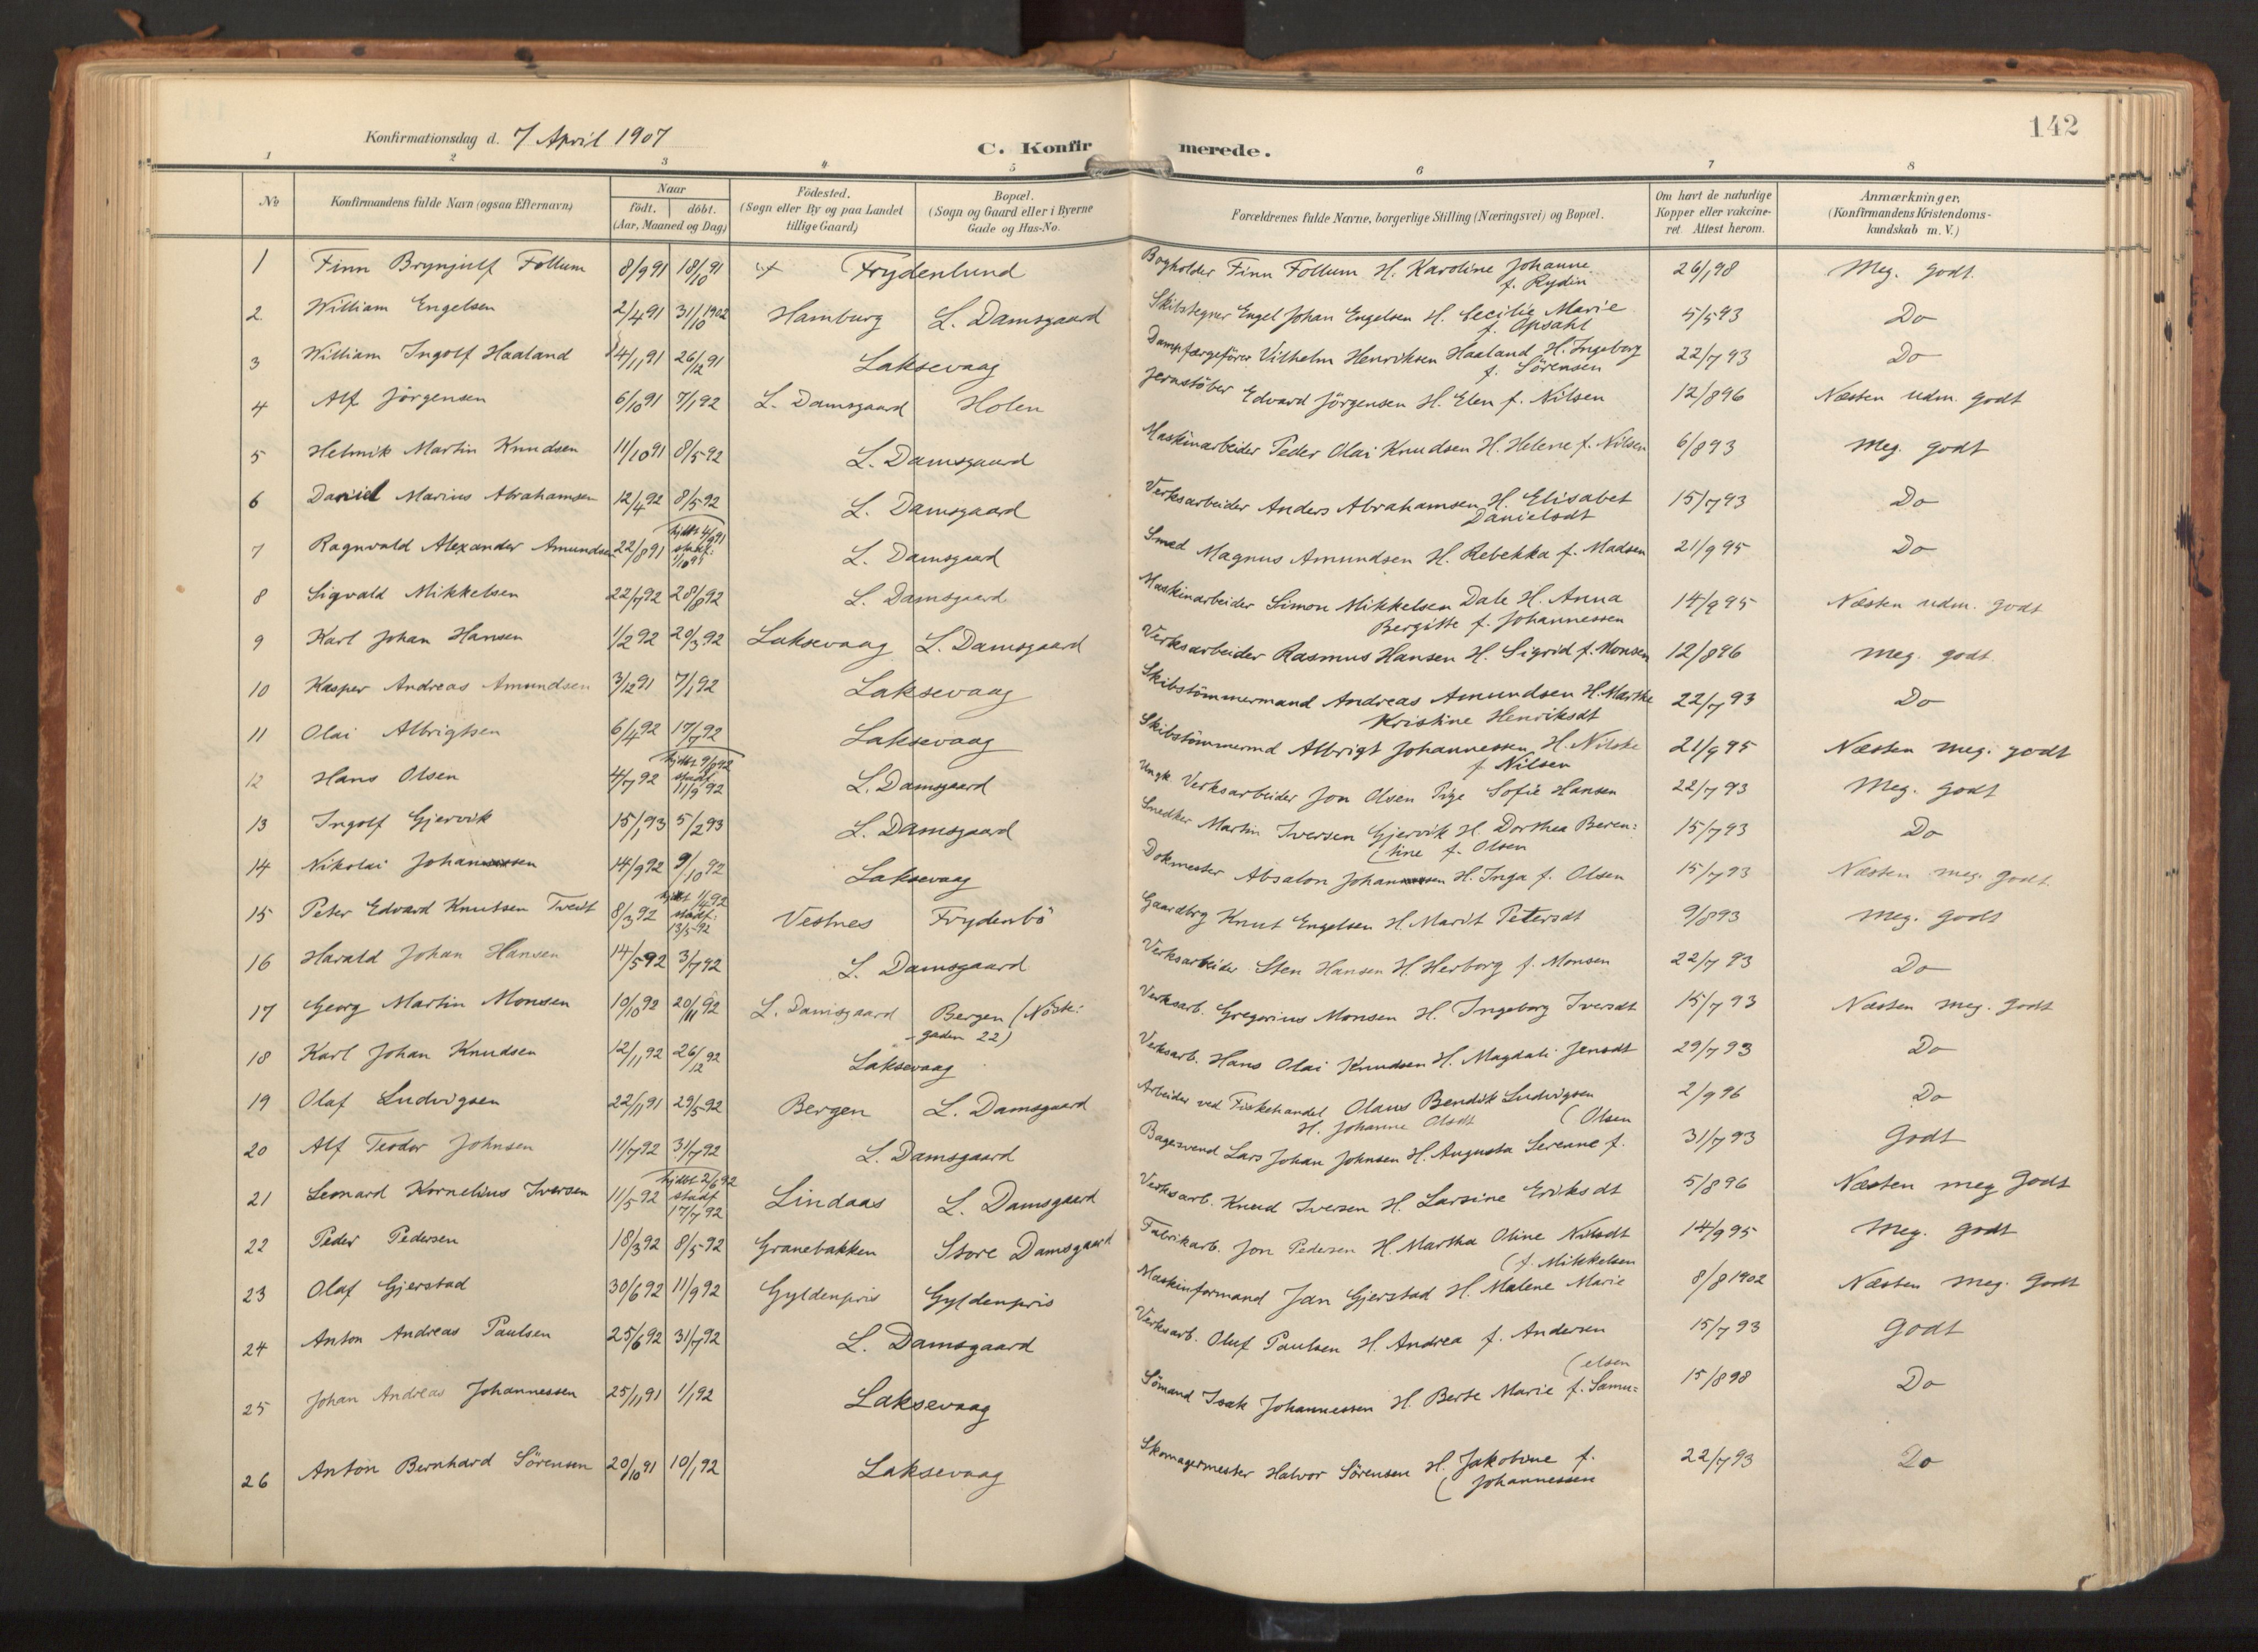 142
Konfirmationsdag d. 7 April 1907
C. Konfirmerede.
1 2 3 4 5 6 7 8
No
Konfirmandens fulde Navn (ogsaa Efternavn)
Naar
födt. döbt.
(Aar, Maaned og Dag)
Födested.
(Sogn eller By og paa Landet
tillige Gaard)
Bopæl.
(Sogn og Gaard eller i Byerne
Gade og Hus-No.
Forældrenes fulde Navne, borgerlige Stilling (Næringsvei) og Bopæl.
Om havt de naturlige
Kopper eller vakcine-
ret. Attest herom.
Anmærkninger,
(Konfirmandens Kristendoms-
kundskab m. V.)
1 Finn Brynjulf Follum 8/9 91 18/10 91 Frydenlund Bogholder Finn Follum H. Karoline Johanne 26/1 98 Meg. godt.
f. Rydin
2. William Engelsen 2/4 91 31/10 1902 Hamburg L. Damsgaard Skibstegner Engel Johan Engelsen H. Cecilie Marie 5/5 93 Do
f. Opsahl
3 William Ingolf Haaland 24/1 91 26/12 91 Laksevaag Dampfærgefører Vilhelm Henriksen Haaland H. Ingeborg 22/7 93 Do
f. Sörensen
4 Alf Jörgensen 6/10 91 7/1 92 L. Damsgaard Holen Jernstöber Edvard Jörgensen H. Elen f. Nilsen 12/8 96 Næsten udm. godt
5 Helmik Martin Knudsen 11/10 91 8/5 92 L. Damsgaard Maskinarbeider Peder Olai Knudsen H. Helene f. Nilsen 6/8 93 Meg. godt
6 Daniel Marius Abrahamsen 12/4 92 8/5 92 L. Damsgaard Verksarbeider Anders Abrahamsen H. Elisabet 15/7 93 Do
Danielsdt
7 Ragnvald Alexander Amundsen 22/8 91 hjdbt 4/9 91 stadf: L. Damsgaard Smed Magnus Amundsen H. Rebekka f. Madsen 21/9 95 Do
8 Sigvald Mikkelsen 22/7 92 28/8 92 L. Damsgaard Maskinarbeider Simon Mikkelsen Dale H. Anna 14/9 95 Næsten udm. godt
Bergitte f. Johannessen
9 Karl Johan Hansen 1/2 92 20/3 92 Laksevaag L. Damsgaard Verksarbeider Rasmus Hansen H. Sigrid f. Monsen 12/8 96 Meg. godt.
10 Kasper Andreas Amundsen 3/12 91 7/1 92 Laksevaag Skibstömmermand Andreas Amundsen H. Marthe 22/7 93 Do
Kristine Henriksdt
11 Olai Albrigtsen 6/4 92 17/7 92 Laksevaag Skibstömmermd Albrigt Johannessen H. Nilske 21/9 95 Næsten meg. godt
f Nilsen
12 Hans Olsen 4/7 92 hjdbt 9/7 92 stadf 11/9 92 L. Damsgaard Ungk. Verksarbeider Jon Olsen Pige Sofie Hansen 22/7 93 Meg. godt
13 Ingolf Gjervik 15/1 93 5/2 93 L. Damsgaard Snedker Martin Iversen Gjervik H. Dorthea Beren= 15/7 93 Do
(tine f. Olsen
14 Nikolai Johansen 14/9 92 9/10 92 Laksevaag Dokmester Absalon Johansen H. Inga f. Olsen 15/7 93 Næsten meg. godt.
15 Peter Edvard Knutsen Tveit 8/3 92 hjdbt 1/4 92 stadf: 13/5 92 Vestnes Frydenbö Gaardbrg Knut Engelsen H. Marit Petersdt 9/8 93 Meg. godt
16 Harald Johan Hansen 14/5 92 3/7 92 L. Damsgaard Verksarbeider Sten Hansen H. Herborg f. Monsen 22/7 93 Do
17 Georg Martin Monsen 10/10 92 20/11 92 L. Damsgaard Bergen (Nöste: Verksarb. Gregorius Monsen H. Ingeborg Iversdt 15/7 93 Næsten meg. godt
-gaden 22)
18 Karl Johan Knudsen 12/11 92 26/12 92 Laksevaag Verksarb. Hans Olai Knudsen H. Magdali Jensdt 29/7 93 Do
19 Olaf Ludvigsen 22/11 91 29/5 92 Bergen L. Damsgaard Arbeider ved Fiskehandel Olaus Bendik Ludvigsen 2/9 96 Do
H. Johanne Olsdt (Olsen
20 Alf Teodor Johnsen 11/7 92 31/7 92 L. Damsgaard Bagersvend Lars Johan Johnsen H. Augusta Serenne f. 31/7 93 Godt
21 Leonard Kornelius Iversen 11/5 92 hjdbt 2/6 92 stadf 17/7 92 Lindaas L. Damsgaard Verksarb. Knud Iversen H. Larsine Eriksdt 5/8 96 Næsten meg Godt
22 Peder Pedersen 18/3 92 8/5 92 Granebakken Store Damsgaard Fabrikarb. Jon Pedersen H. Martha Oline Nilsdt 14/9 95 Meg. godt
(f. Mikkelsen
23 Olaf Gjerstad 30/6 92 11/9 92 Gyldenpris Gyldenpris Maskinformand Jan Gjerstad H. Malene Marie 8/8 1902 Næsten meg. Godt
24 Anton Andreas Paulsen 25/6 92 31/7 92 L. Damsgaard Verksarb. Oluf Paulsen H. Andrea f. Andersen 15/7 93 Godt
(elsen
25 Johan Andreas Johannessen 25/11 91 1/1 92 Laksevaag Sömand Isak Johannessen H. Berte Marie f. Samu= 15/8 98 Do
26 Anton Bernhard Sörensen 20/10 91 10/1 92 Laksevaag Skomagermester Halvor Sörensen H. Jakobine f. 22/7 93 Do
(Johannessen